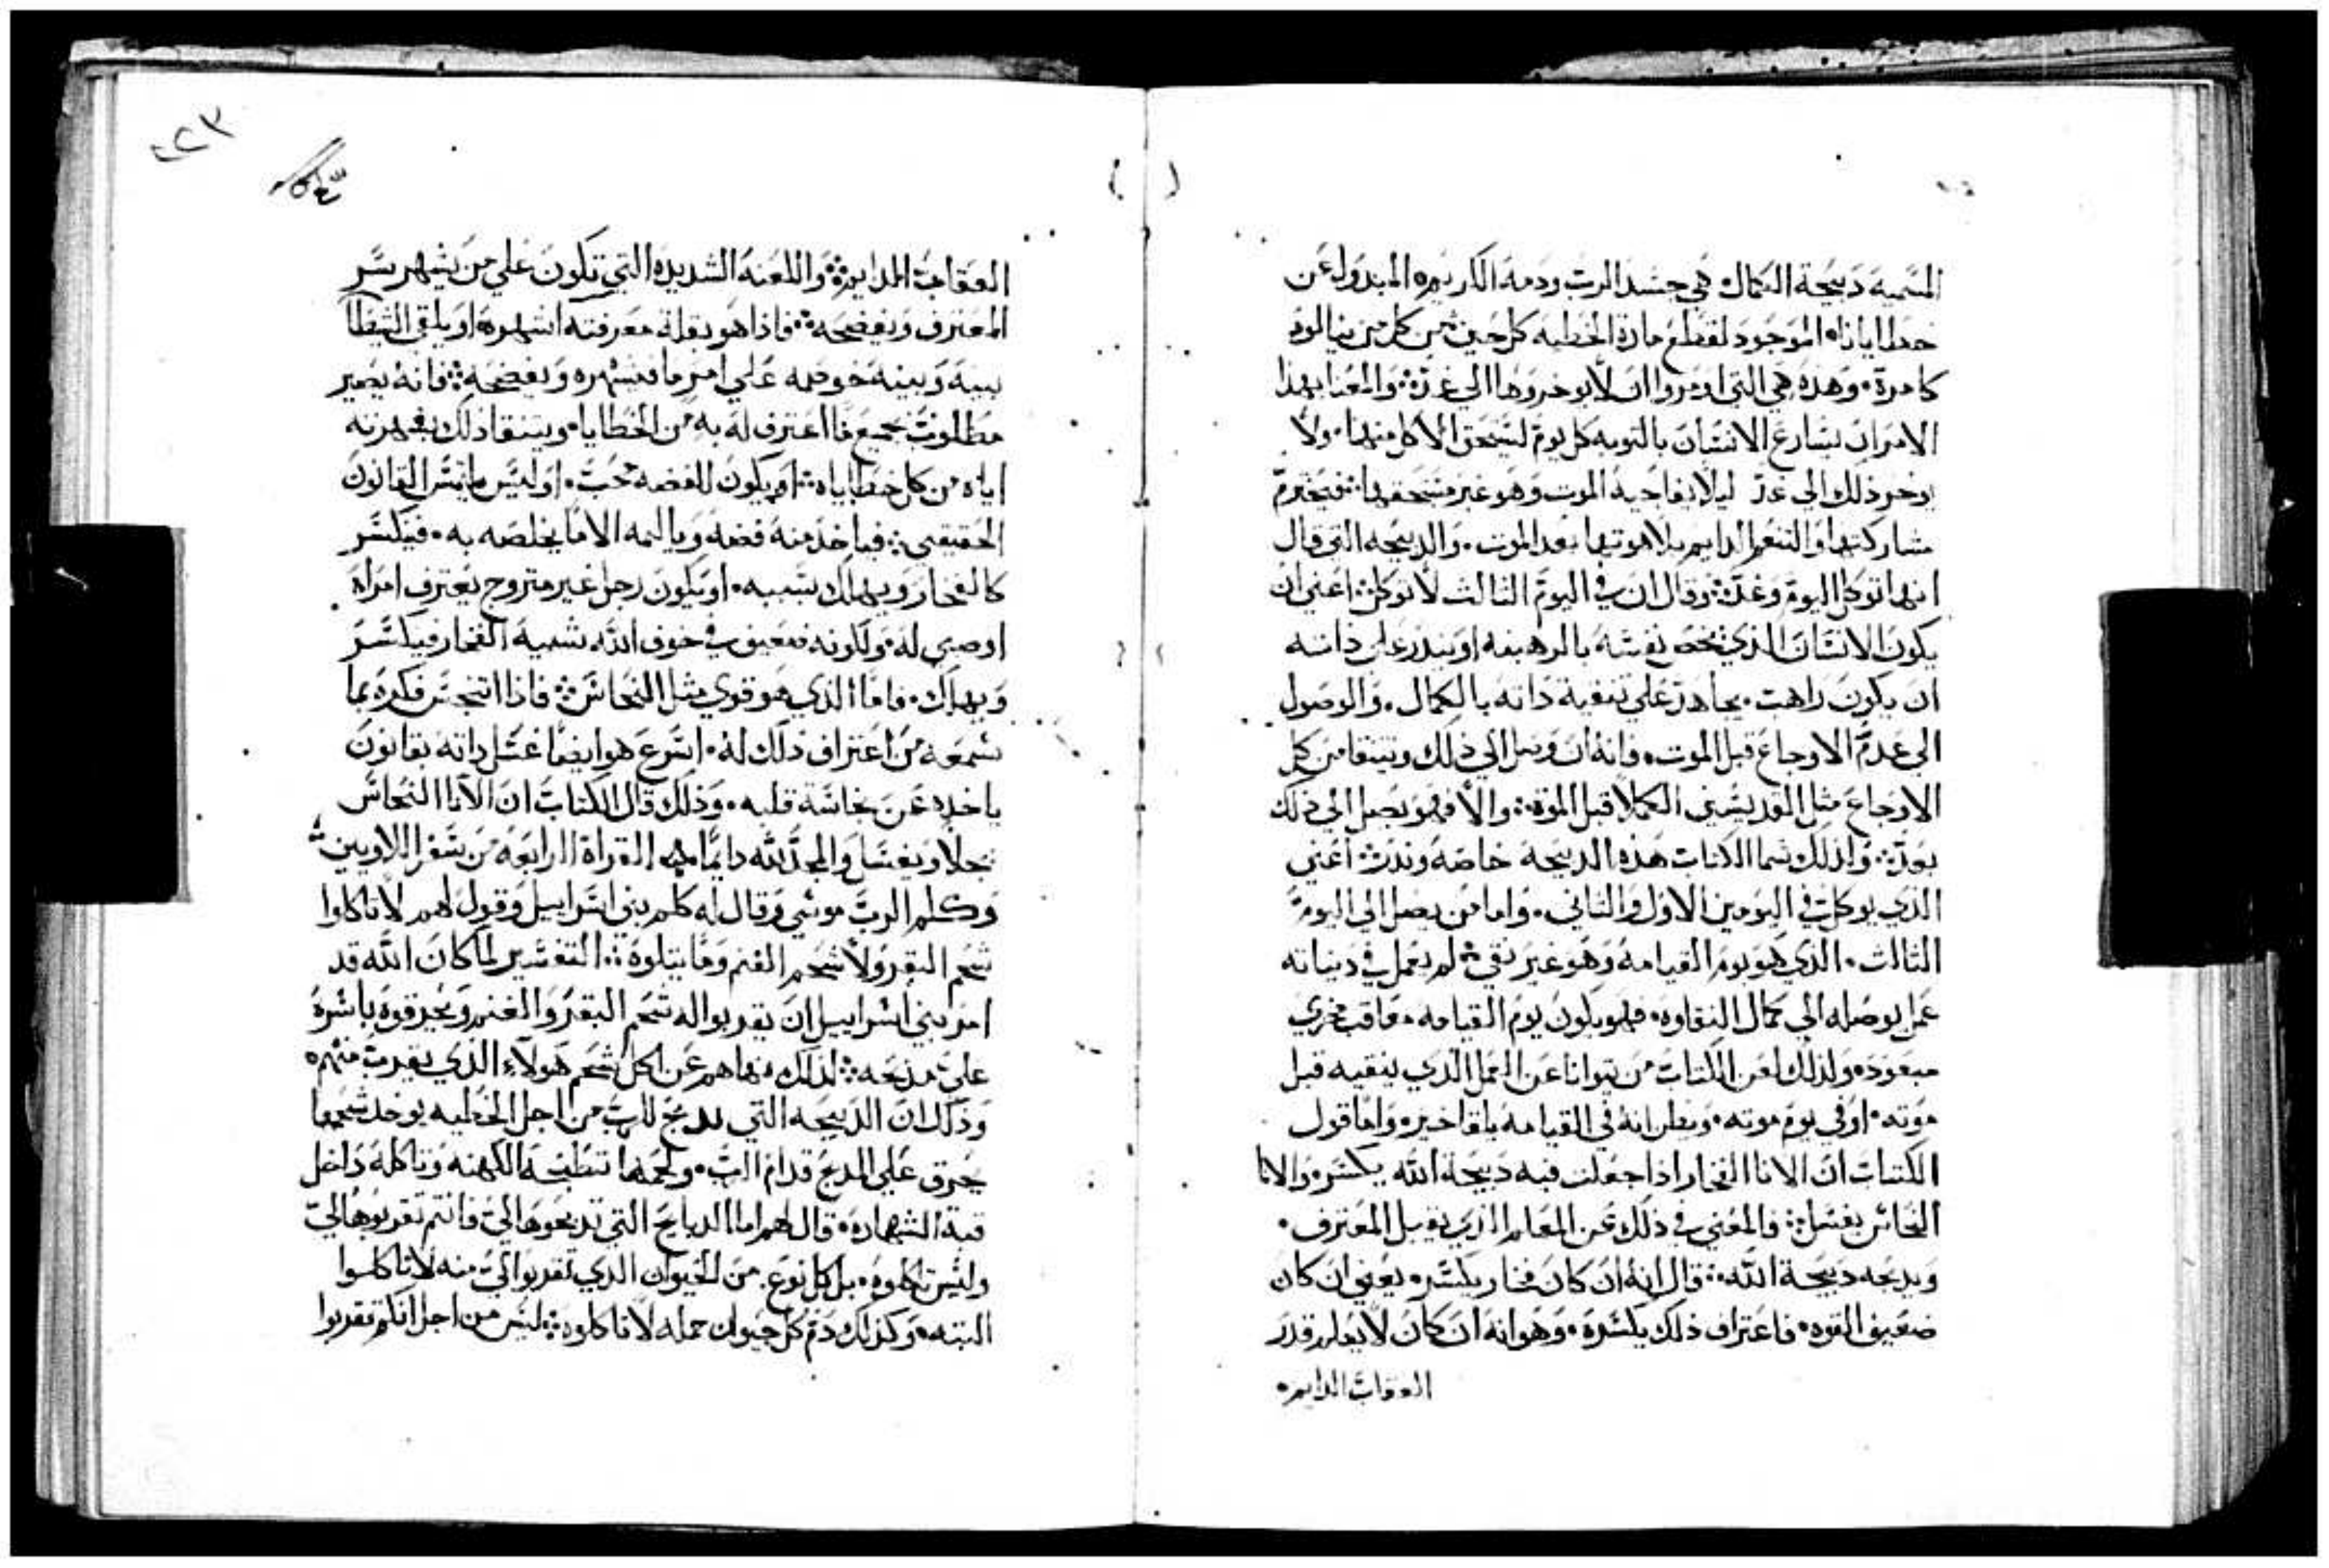 المسميه دبيحة الكمال هي جسد الرب ودمه الكريمه المبدول عن
خطايانا الموجود لقطع مادة الخطيه كل حين من كل من يتالود
كامرة وهذه هي التي اومروا ان لا يوخروها الي غد والمعنا بهذا
الامران يسارع الانسان بالتوبه كل يوم ليستحق الاكل منها ولا
يوخر ذلك الي غد ليلا يفاجيه الموت وهو غير مستحقها فيحترم
مشاركتها والتنعم الدايم بلاهوتها بعد الموت والدبيحه التي قال
انها توكل اليوم وغد وقال ان في اليوم الثالث لا توكل اعني ان
يكون الانسان الذي يخص نفسه بالرهبنه او يندر علي داته
ان يكون راهب يجاهد علي تنقية داته بالكمال والوصول
الي عدم الاوجاع قبل الموت فانه ان وصل الي ذلك وتنقا من كل
الاوجاع مثل القديسين الكملا قبل الموت والا فهو يصل الي ذلك
بعد ولذلك سما الكتاب هذه الدبيحة خاصه وندر اعني
الذي يوكل في اليومين الاول والتاني واما من يصل الي اليوم
الثالث الذي هو يوم القيامه وهو غير نقي لم يعمل في دنياته
عمل يوصله الي كمال النقاوه فهو يكون يوم القيامه معاقب مخزي
مبعود ولذلك لعن الكتاب من يتوانا عن العمل الذي ينقيه قبل
موته او في يوم موته ويظن انه في القيامه يلقا خير واما قول
الكتاب ان الانا الفخار اذا جعلت فيه دبيحة الله يكسر والانا
النحاس يغسل فالمعني في ذلك عن المعلم الذي يقبل المعترف
ويدبحه دبيحة الله قال انه ان كان فخار يكسر يعني ان كان
ضعيف القوه فاعتراف ذلك يكسره وهو انه ان كان لا يعلم قدر
العقاب الدايم
العقاب الدايم واللعنه الشديده التي تكون علي من يشهر بسر
المعترف ويفضحه فاذا هو بقلة معرفته اشهره او يلقي الشيطا
بينه وبينه خوصمه علي امر ما فيشهره ويفضحه فانه يصير
مطلوب بجميع ما اعترف له به من الخطايا ويتنقا ذلك بشهرته
اياه من كل خطاياه او يكون للفضه محب او ليس ماسك القانون
الحقيقي فياخذ منه فضه ويالمه الاما يخلصه به فيكسر
كالفخار ويهلك بسببه او يكون رجل غير متزوج يعترف امراه
او صبي له ولكونه ضعيف في خوف الله شبيه الفخار فيكسر
ويهلك فاما الذي هو قوي مثل النحاس فاذا اتنجس فكره بما
يسمعه من اعتراف ذلك له اسرع هو ايضا غسل داته بقانون
ياخده عن نجاسة قلبه وذلك قال الكتاب ان الانا النحاس
يجلا ويغسل والمجد لله دايما القراة الرابعه من سفر اللاويين
وكلم الرب موسي وقال له كلم بني اسراييل وقول لهم لا تاكلوا
شحم البقر ولا شحم الغنم وما يتلوه التفسير لما كان الله قد
امر بني اسراييل ان يقربوا له شحم البقر والغنم ويحرقوه باسره
علي مدبحه لذلك نهاهم عن اكل شحم هولاء الذي يقرب منهم
وذلك ان الدبيحه التي تدبح للرب من اجل الخطيه يوخد شحمها
يحرق علي المدبح قدام الرب ولحمها تنطبخه الكهنه وتاكله داخل
قبة الشهاده قال لهم اما الدبايح التي تدبحوها لي فانتم تقربوها لي
وليس تاكلوه بل كل نوع من الحيوان الذي تقربوا لي منه لا تاكلوا
البته وكذلك دم كل حيوان حمله لا تاكلوه ليس من اجل انكم تقربوا